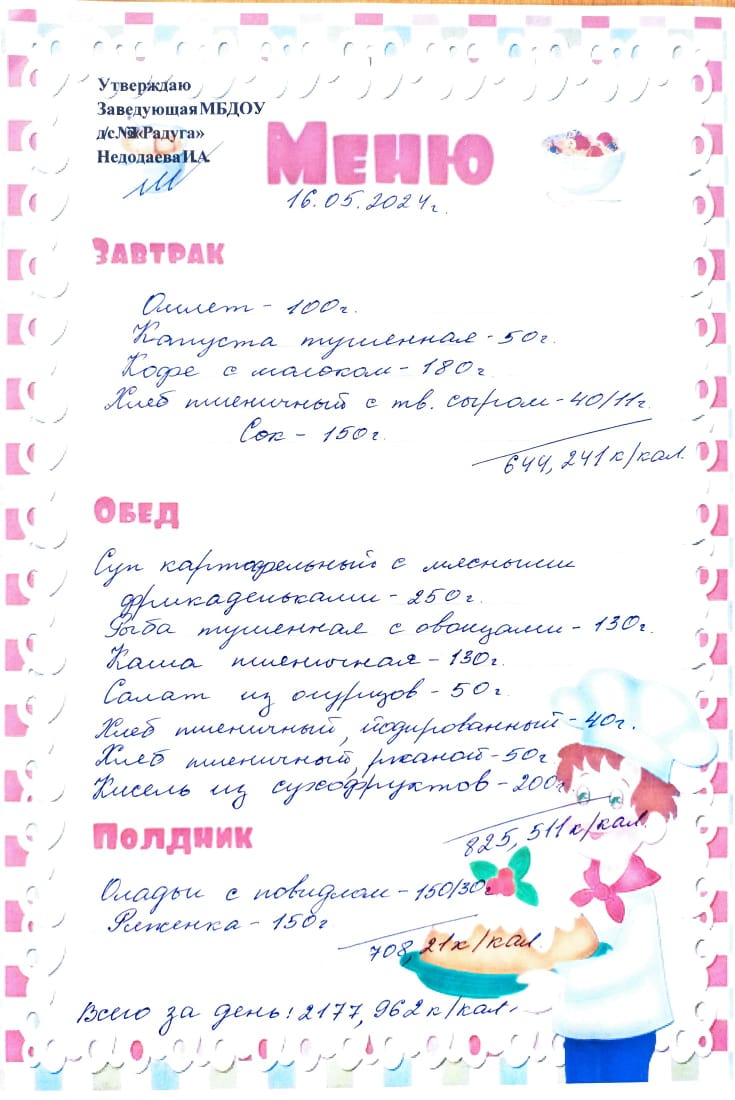 Утверждаю
Заведующая МБДОУ
д/с «Радуга»
Недодаева И.А.
Меню
16.05.2024г.
Завтрак
Омлет - 100г.
Капуста тушенная - 50г.
Кофе с молоком - 180г.
Хлеб пшеничный с тв. сыром - 40/11г.
Сок - 150г.
644, 241к/кал.
Обед
Суп картофельный с мясными
фрикадельками - 250г.
Рыба тушенная с овощами - 130г.
Каша пшеничная - 130г.
Салат из огурцов - 50г.
Хлеб пшеничный, йодированный - 40г.
Хлеб пшеничный, ржаной - 50г.
Кисель из сухофруктов - 200г.
825, 511к/кал.
Полдник
Оладьи с повидлом - 150/30г
Ряженка - 150г
708, 21к/кал.
Всего за день: 2177, 962к/кал.